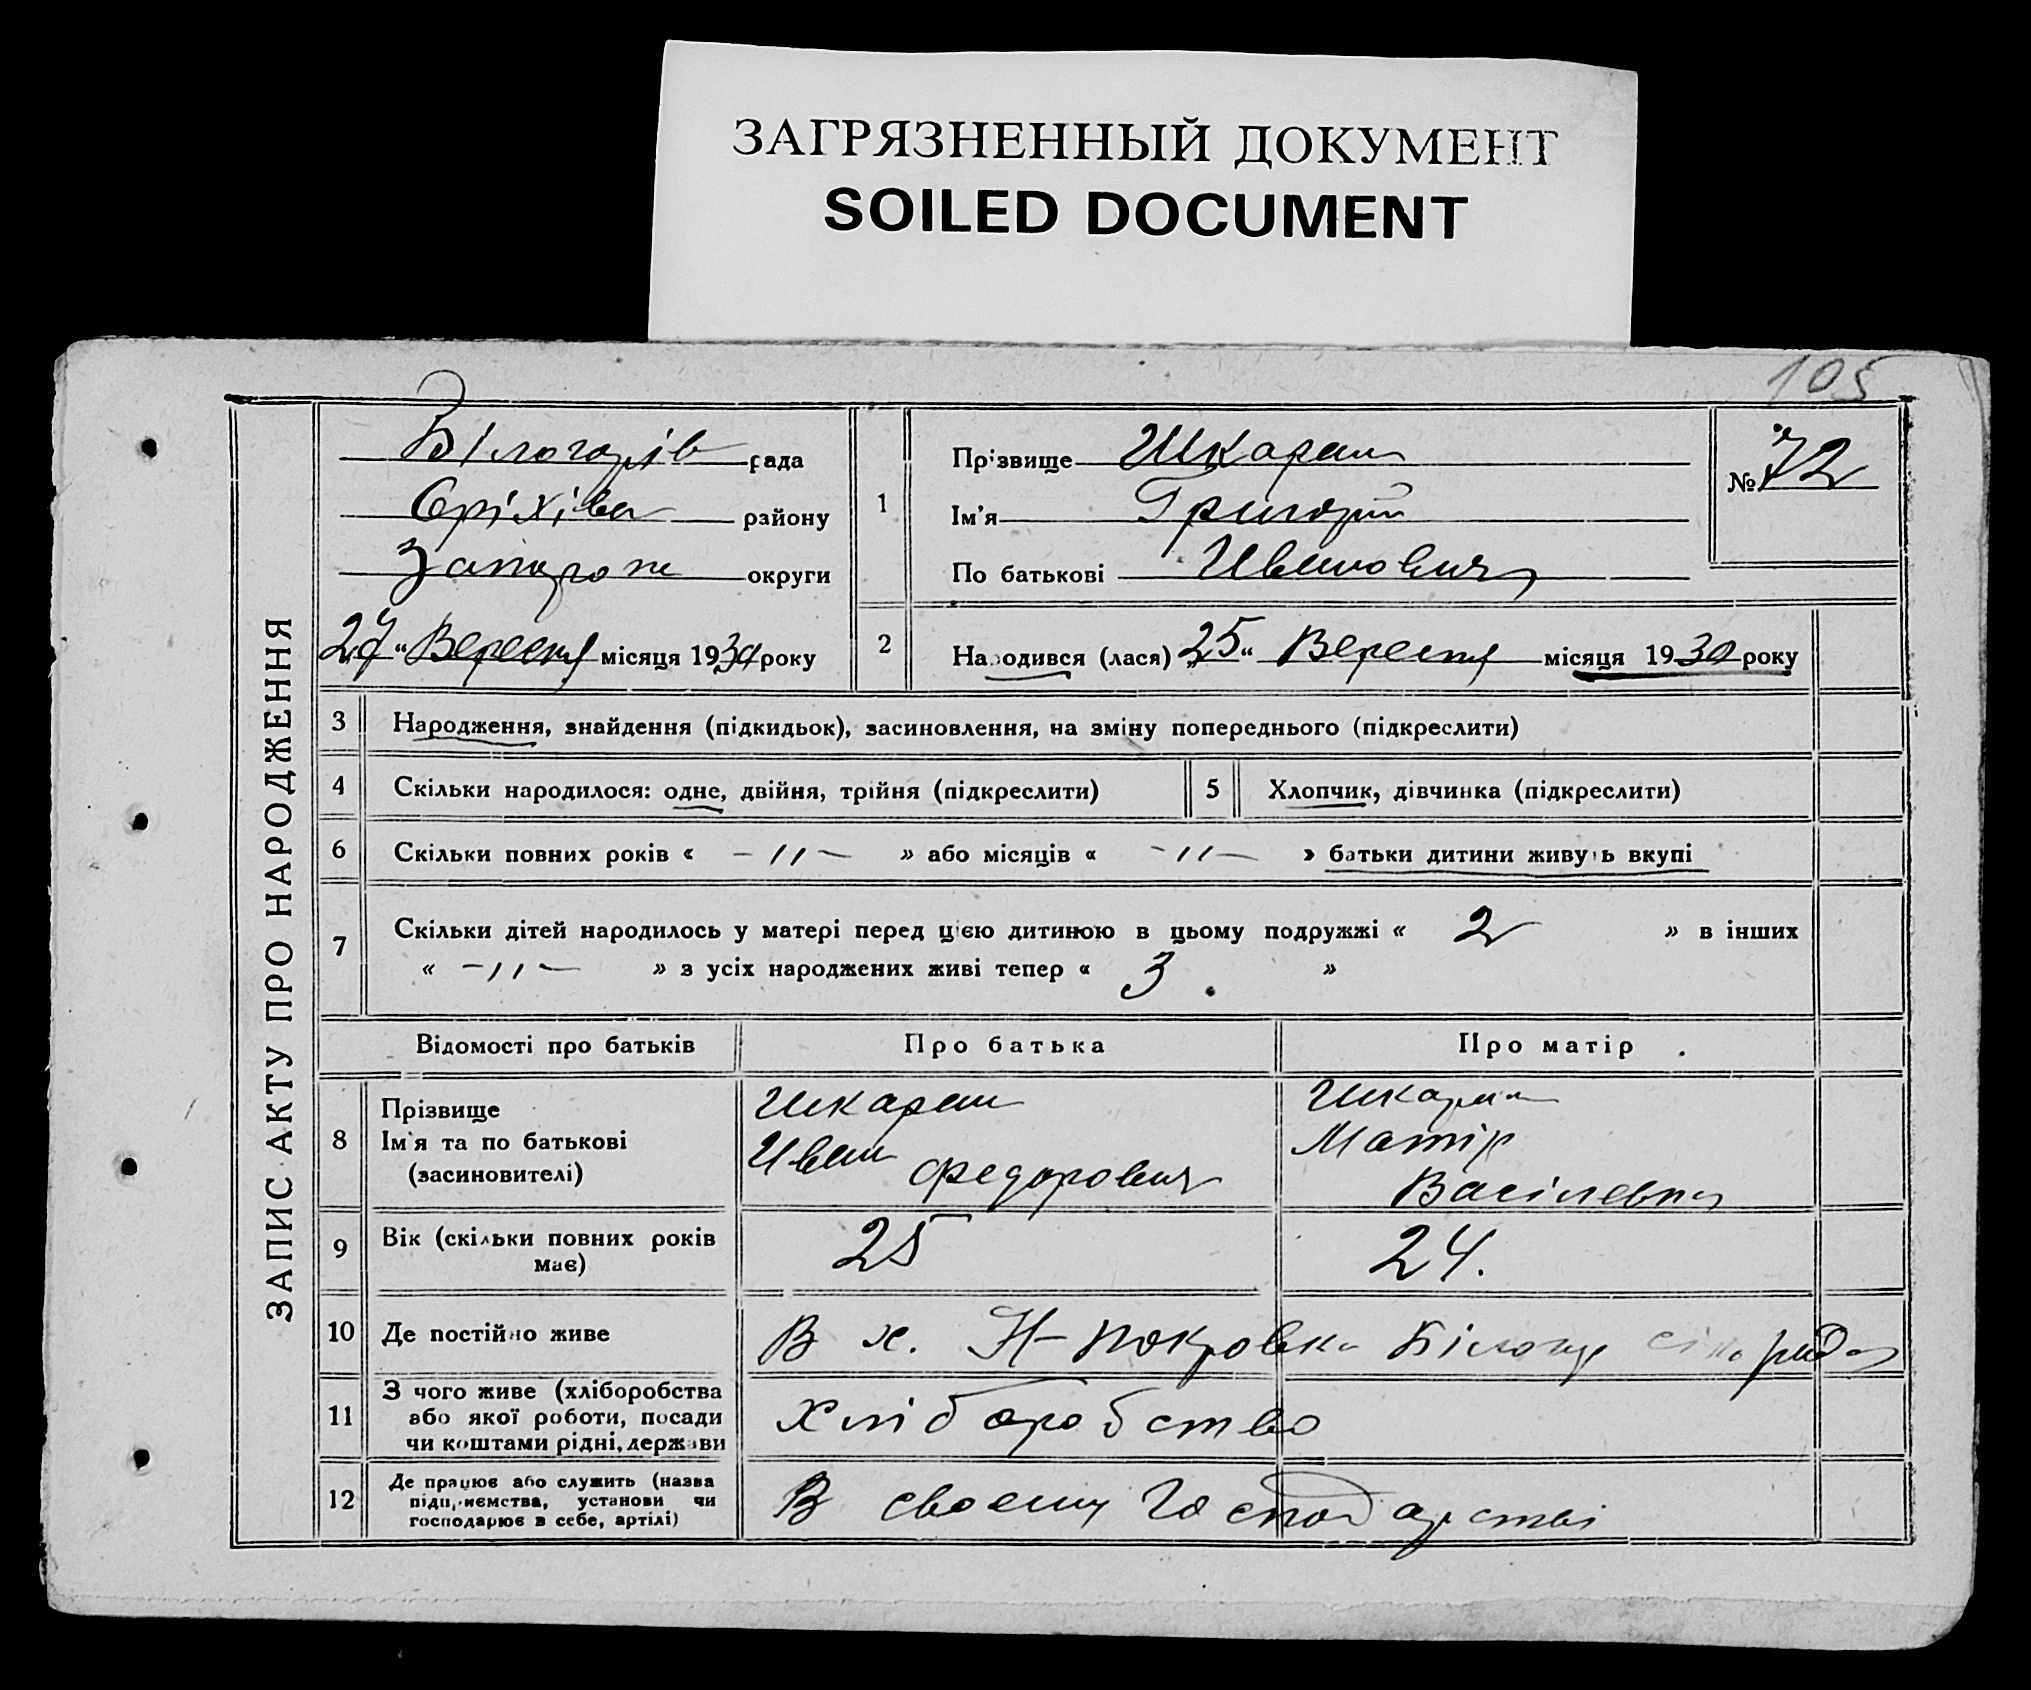 ЗАГРЯЗНЕННЫЙ ДОКУМЕНТ
SOILED DOCUMENT
105
ЗАПИС АКТУ ПРО НАРОДЖЕННЯ
Білогорів рада
Оріхів району
Запорож округи
"27" Вересня місяця 1930 року
1
Прізвище Шкарап
Ім'я Григорій
По батькові Иванович
№ 72
2 Народився (лася) "25" Вересня місяця 1930 року
3 Народження, знайдення (підкидьок), засиновлення, на зміну попереднього (підкреслити)
4 Скільки народилося: одне, двійня, трійня (підкреслити) 5 Хлопчик, дівчинка (підкреслити)
6 Скільки повних років « -//- » або місяців « -//- » батьки дитини живуть вкупі
7 Скільки дітей народилось у матері перед цією дитиною в цьому подружжі « 2 » в інших
« -//- » з усіх народжених живі тепер « 3 »
Відомості про батьків Про батька Про матір
8 Прізвище Шкарап Шкарап
Ім'я та по батькові Иван Федорович
(засиновителі) Васілевна
9 Вік (скільки повних років має) 25 24.
10 Де постійно живе В х. Н-Покровка рада
11 З чого живе (хліборобства
або якої роботи, посади хліборобство
чи коштами рідні, держави
12 Де працює або служить (назва
підприємства, установи чи В своему господарстві
господарює в себе, артілі)